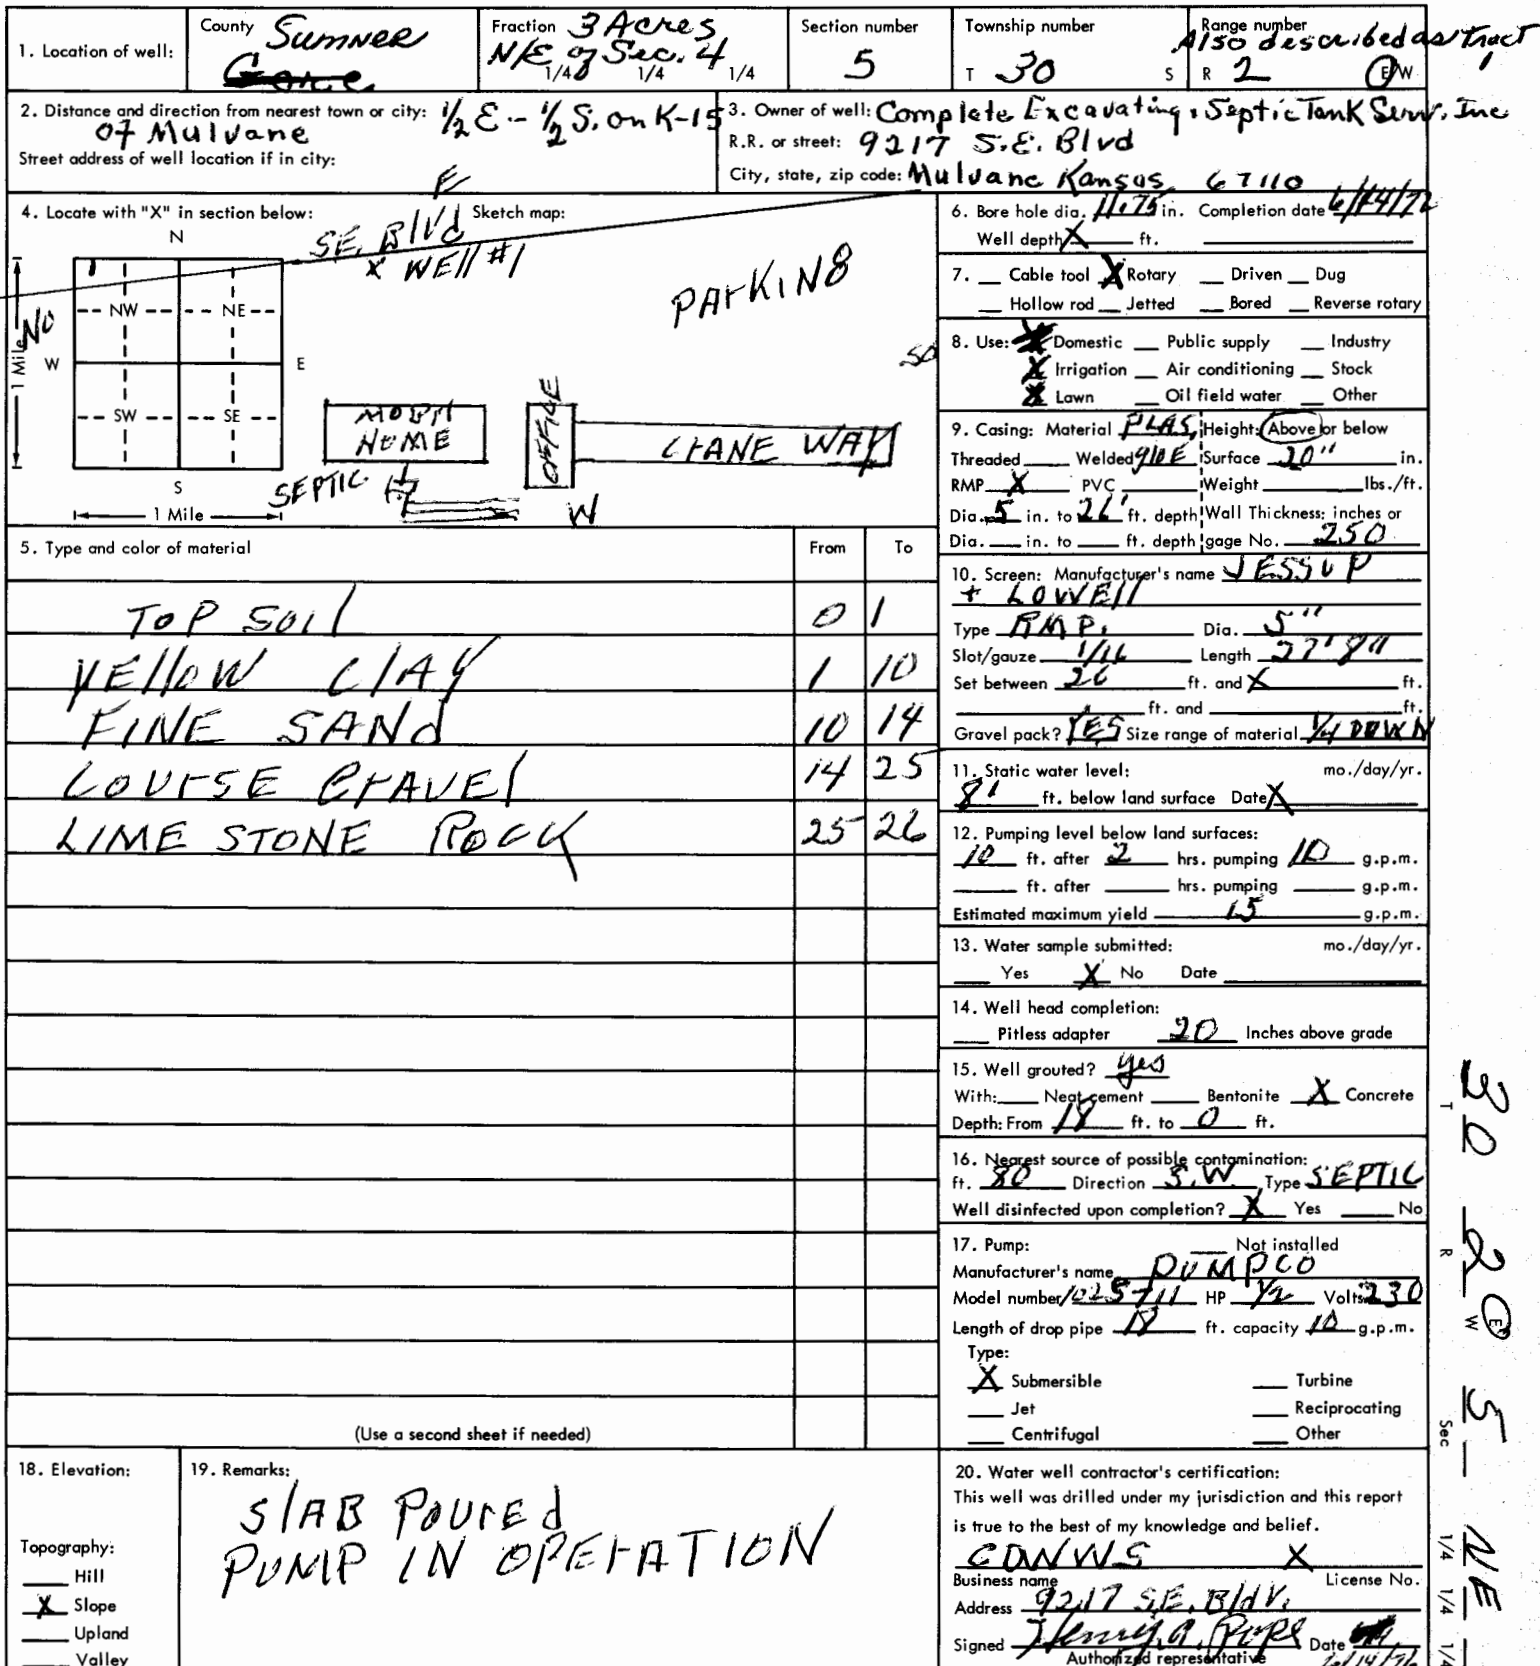 1. Location of well:
County Sumner
Fraction 3 Acres
N/E of Sec. 4
1/4 1/4 1/4
Section number
5
Township number
T 30 S
Range number
Also described as Tract 1
R 2 E/W
2. Distance and direction from nearest town or city: 1/2 E - 1/2 S. on K-15
of Mulvane
Street address of well location if in city:
3. Owner of well: Complete Excavating & Septic Tank Serv. Inc
R.R. or street: 9217 S.E. Blvd
City, state, zip code: Mulvane Kansas 67110
4. Locate with "X" in section below:
Sketch map:
E
SE. Blvd
X WEll #1
PArKING
N
NW NE
W E
SW SE
S
1 Mile
1 Mile
NO
SO
MObil
HOME
OFFICE
CrANE WAY
SEPTIC
W
5. Type and color of material From To
TOP SOIl 0 1
YEllOW ClAY 1 10
FINE SANd 10 14
COUrSE GrAVEl 14 25
LIME STONE ROCK 25 26
(Use a second sheet if needed)
6. Bore hole dia. 11.75 in. Completion date
Well depth X ft.
7. Cable tool X Rotary Driven Dug
Hollow rod Jetted Bored Reverse rotary
8. Use: Domestic Public supply Industry
X Irrigation Air conditioning Stock
X Lawn Oil field water Other
9. Casing: Material PLAS. Height: Above or below
Threaded Welded glUE Surface 20" in.
RMP X PVC Weight lbs./ft.
Dia. 5 in. to 26' ft. depth Wall Thickness: inches or
Dia. in. to ft. depth gage No. .250
10. Screen: Manufacturer's name JESSUP
+ LOWEll
Type RMP. Dia. 5"
Slot/gauze 1/16 Length
Set between 26 ft. and X ft.
ft. and ft.
Gravel pack? YES Size range of material 1/4 DOWN
11. Static water level: mo./day/yr.
8' ft. below land surface Date X
12. Pumping level below land surfaces:
10 ft. after 2 hrs. pumping 10 g.p.m.
ft. after hrs. pumping g.p.m.
Estimated maximum yield 15 g.p.m.
13. Water sample submitted: mo./day/yr.
Yes X No Date
14. Well head completion:
Pitless adapter 20 Inches above grade
15. Well grouted? yes
With: Neat cement Bentonite X Concrete
Depth: From 18 ft. to 0 ft.
16. Nearest source of possible contamination:
ft. 80 Direction S.W. Type SEPTIC
Well disinfected upon completion? X Yes No
17. Pump: Not installed
Manufacturer's name PUMPCO
Model number HP 1/2 Volts 230
Length of drop pipe 18 ft. capacity 10 g.p.m.
Type:
X Submersible Turbine
Jet Reciprocating
Centrifugal Other
18. Elevation:
Topography:
Hill
X Slope
Upland
Valley
19. Remarks:
SlAB POUrEd
PUMP IN OPErATION
20. Water well contractor's certification:
This well was drilled under my jurisdiction and this report
is true to the best of my knowledge and belief.
CDWWS X
Business name License No.
Address 9217 S.E. Bldv.
Signed Henry A. Pope Date
Authorized representative 6/14/76
T 30
R 2 E W
Sec 5
1/4 1/4 1/4 NE